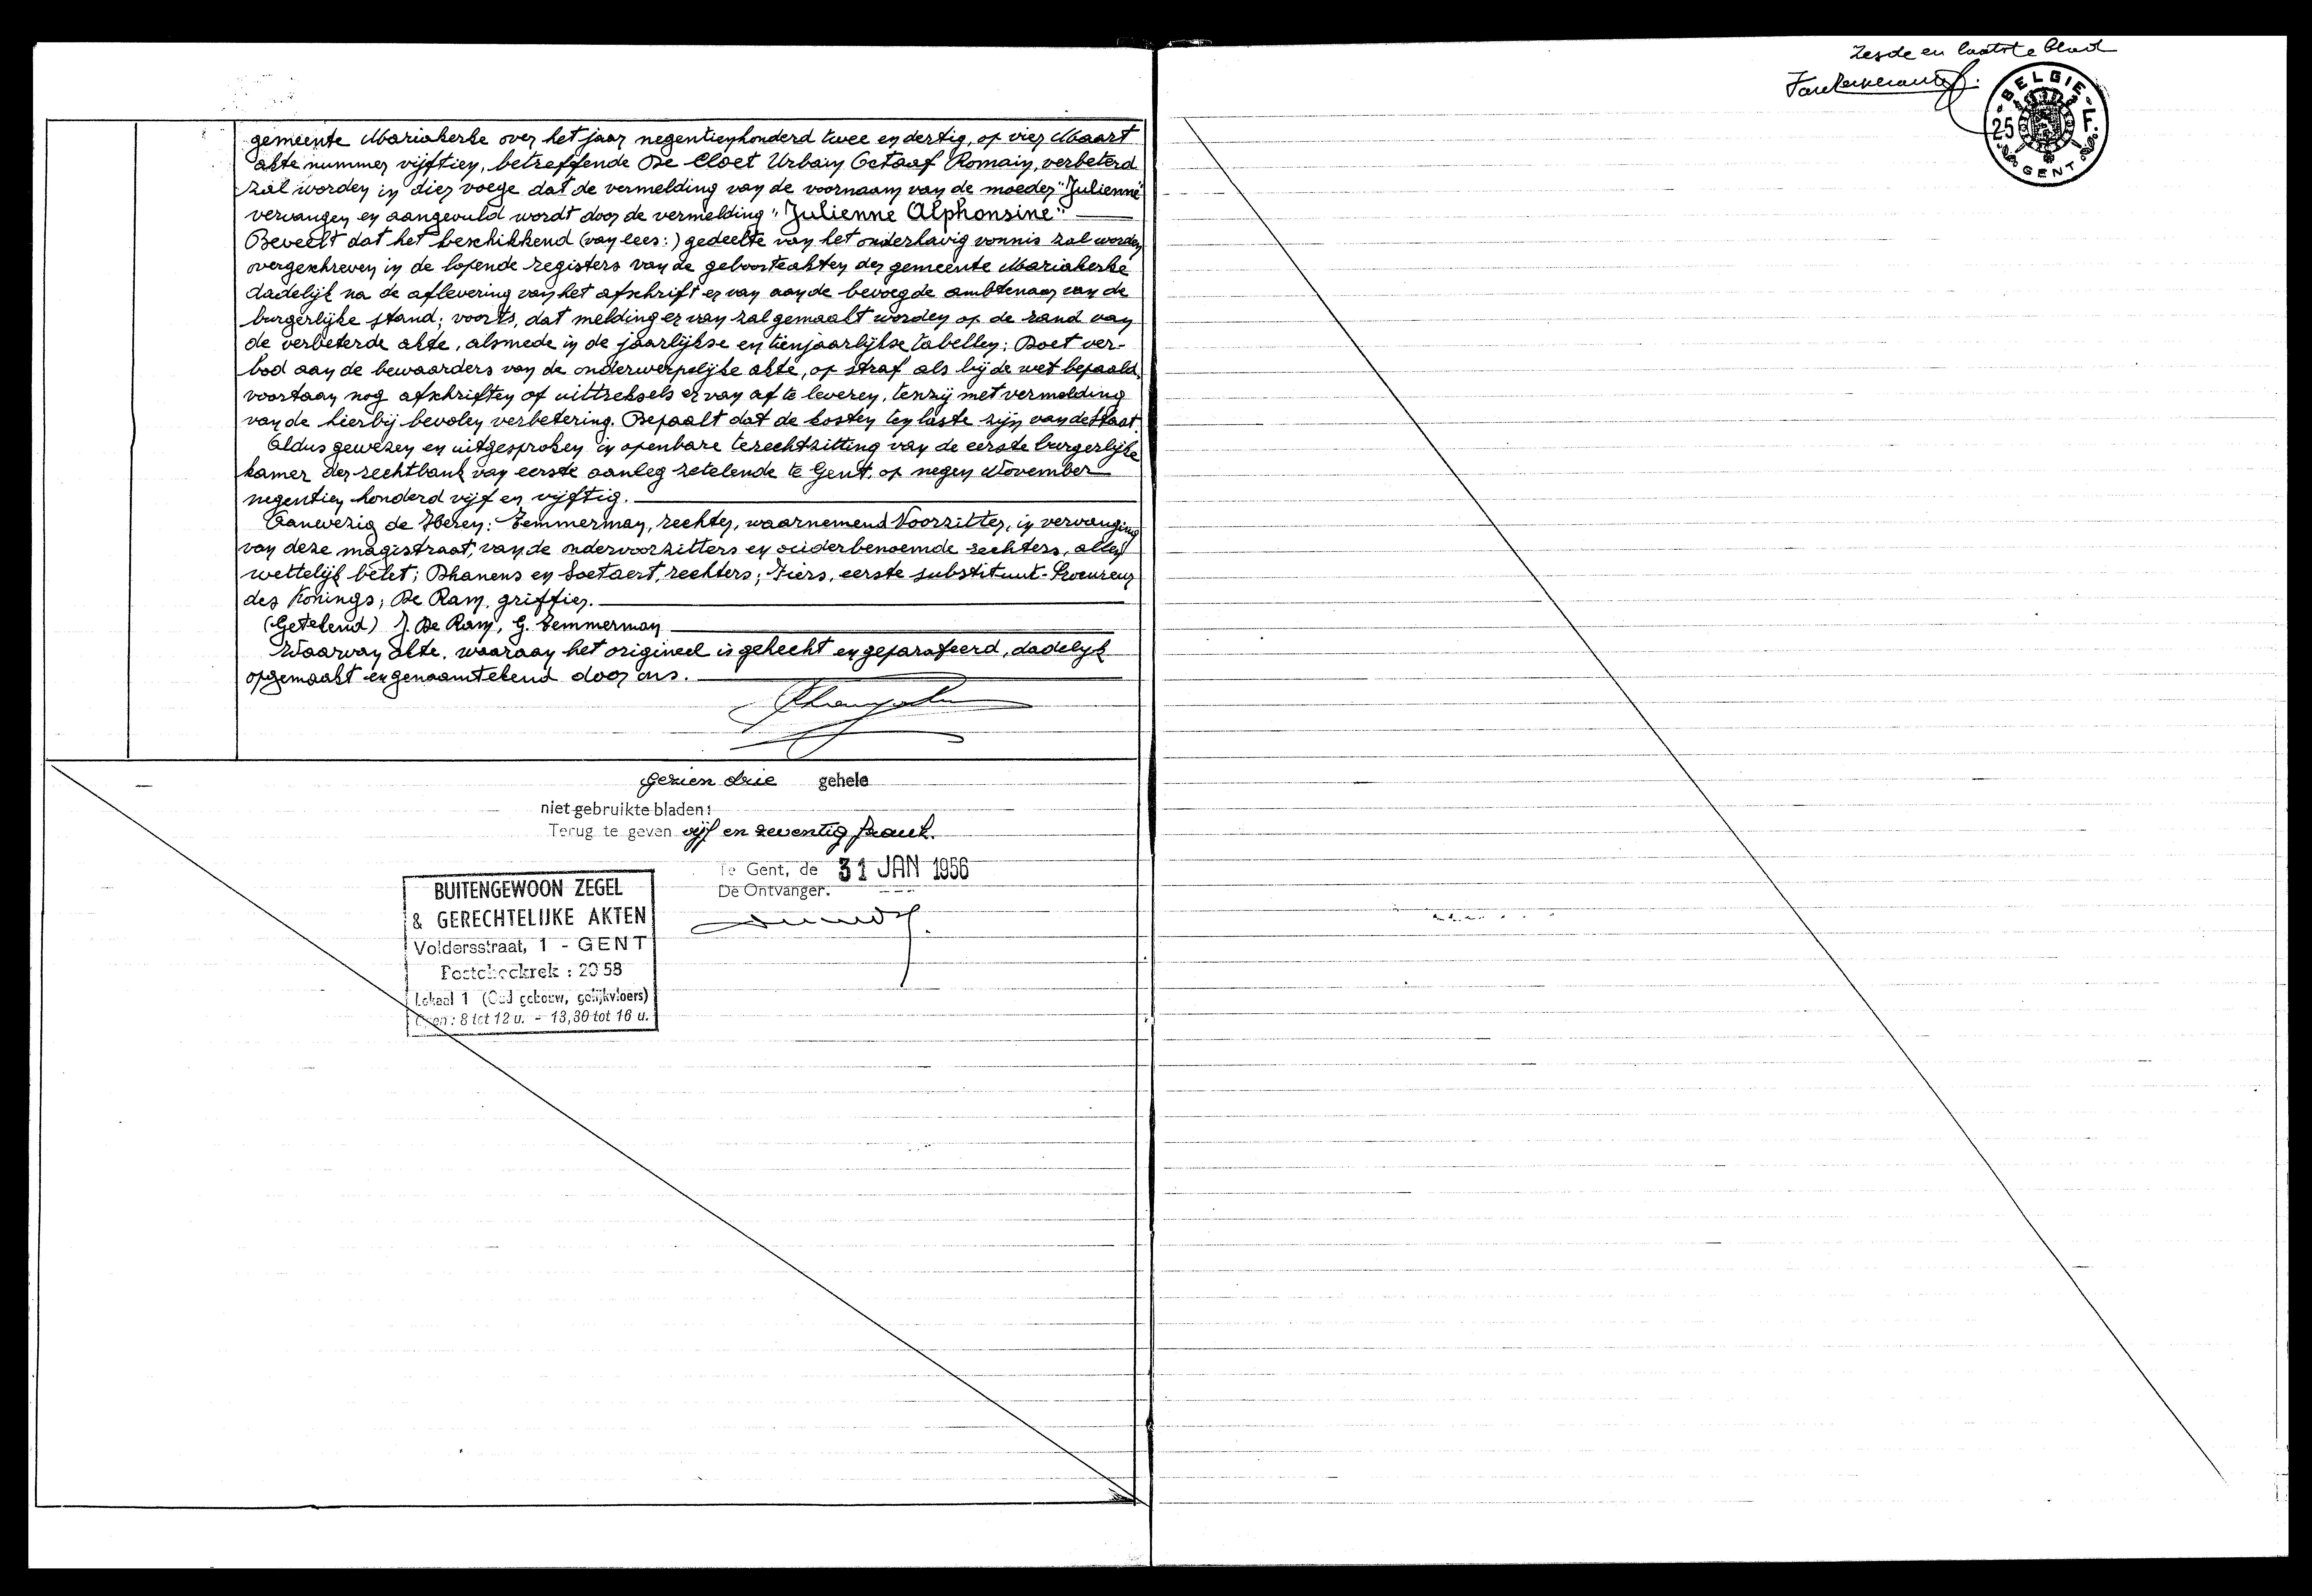 gemeente Mariakerke over het jaar negentienhonderd twee en dertig, op vier Maart
akte nummer vijftien, betreffende De Cloet Urbain Octaaf Romain, verbeterd
zal worden in dier voege dat de vermelding van de voornaam van de moeder "Julienne"
vervangen en aangevuld wordt door de vermelding "Julienne Alphonsine"
Beveelt dat het beschikkend (van lees:) gedeelte van het onderhavig vonnis zal worden
overgeschreven in de lopende registers van de geboorteakten der gemeente Mariakerke
dadelijk na de aflevering van het afschrift ervan aan de bevoegde ambtenaar van de
burgerlijke stand; voorts, dat melding ervan zal gemaakt worden op de rand van
de verbeterde akte, alsmede in de jaarlijkse en tienjaarlijkse tabellen; Doet ver-
bod aan de bewaarders van de onderwerpelijke akte, op straf als bij de wet bepaald,
voortaan nog afschriften of uittreksels ervan af te leveren, tenzij met vermelding
van de hierbij bevolen verbetering. Bepaalt dat de kosten ten laste zijn van de Staat.
Aldus gewezen en uitgesproken in openbare terechtzitting van de eerste burgerlijke
kamer der rechtbank van eerste aanleg zetelende te Gent, op negen November
negentien honderd vijf en vijftig.
Aanwezig de Heren: Temmerman, rechter, waarnemend Voorzitter, in vervanging
van deze magistraat, van de ondervoorzitters en ouderbenoemde rechters, allen
wettelijk belet; Dhanens en Soetaert, rechters; Fiers, eerste substituut-Procureur
des Konings; De Ram, griffier.
(Getekend) J. De Ram, G. Temmerman
Waarvan akte, waaraan het origineel is gehecht en geparafeerd, dadelijk
opgemaakt en genaamtekend door ons.
gezien drie gehele
niet gebruikte bladen:
Terug te geven vijf en zeventig frank.
Te Gent, de 31 JAN 1956
De Ontvanger.
BUITENGEWOON ZEGEL
& GERECHTELIJKE AKTEN
Voldersstraat, 1 - GENT
Postcheckrek : 2058
Lokaal 1 (Oud gebouw, gelijkvloers)
Open : 8 tot 12 u. - 13,30 tot 16 u.
Zesde en laatste blad
BELGIE
25 F.
GENT